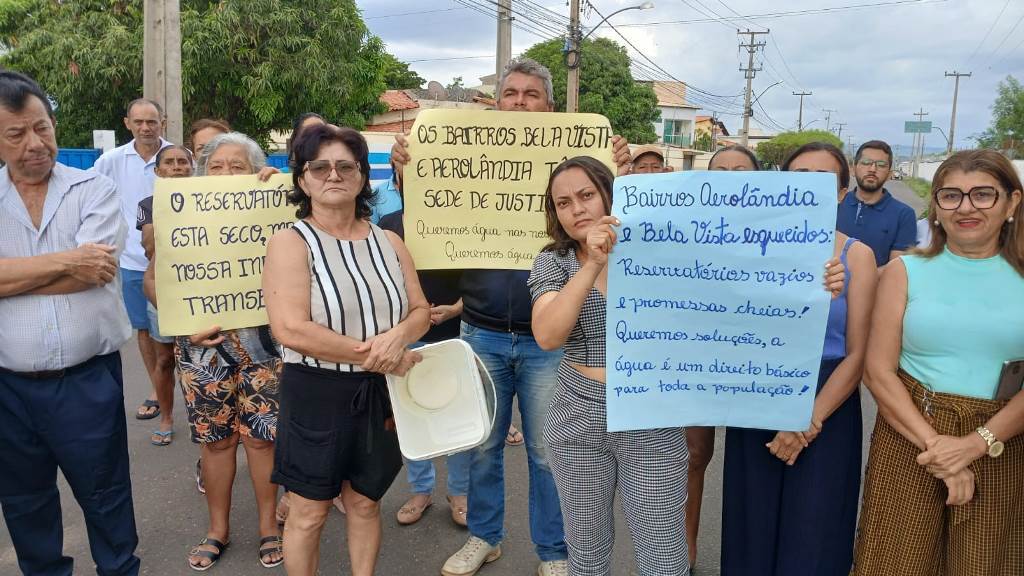 O RESERVATÓ
ESTA SECO, M
NOSSA IN
TRANSB
OS BAIRROS BELA VISTA
E AEROLÂNDIA
SEDE DE JUSTI
Queremos água nas
Queremos água
BAIRROS AEROLÂNDIA
E BELA VISTA ESQUECIDOS:
RESERVATÓRIOS VAZIOS
E PROMESSAS CHEIAS!
QUEREMOS SOLUÇÕES, A
ÁGUA É UM DIREITO BÁSICO
PARA TODA A POPULAÇÃO!